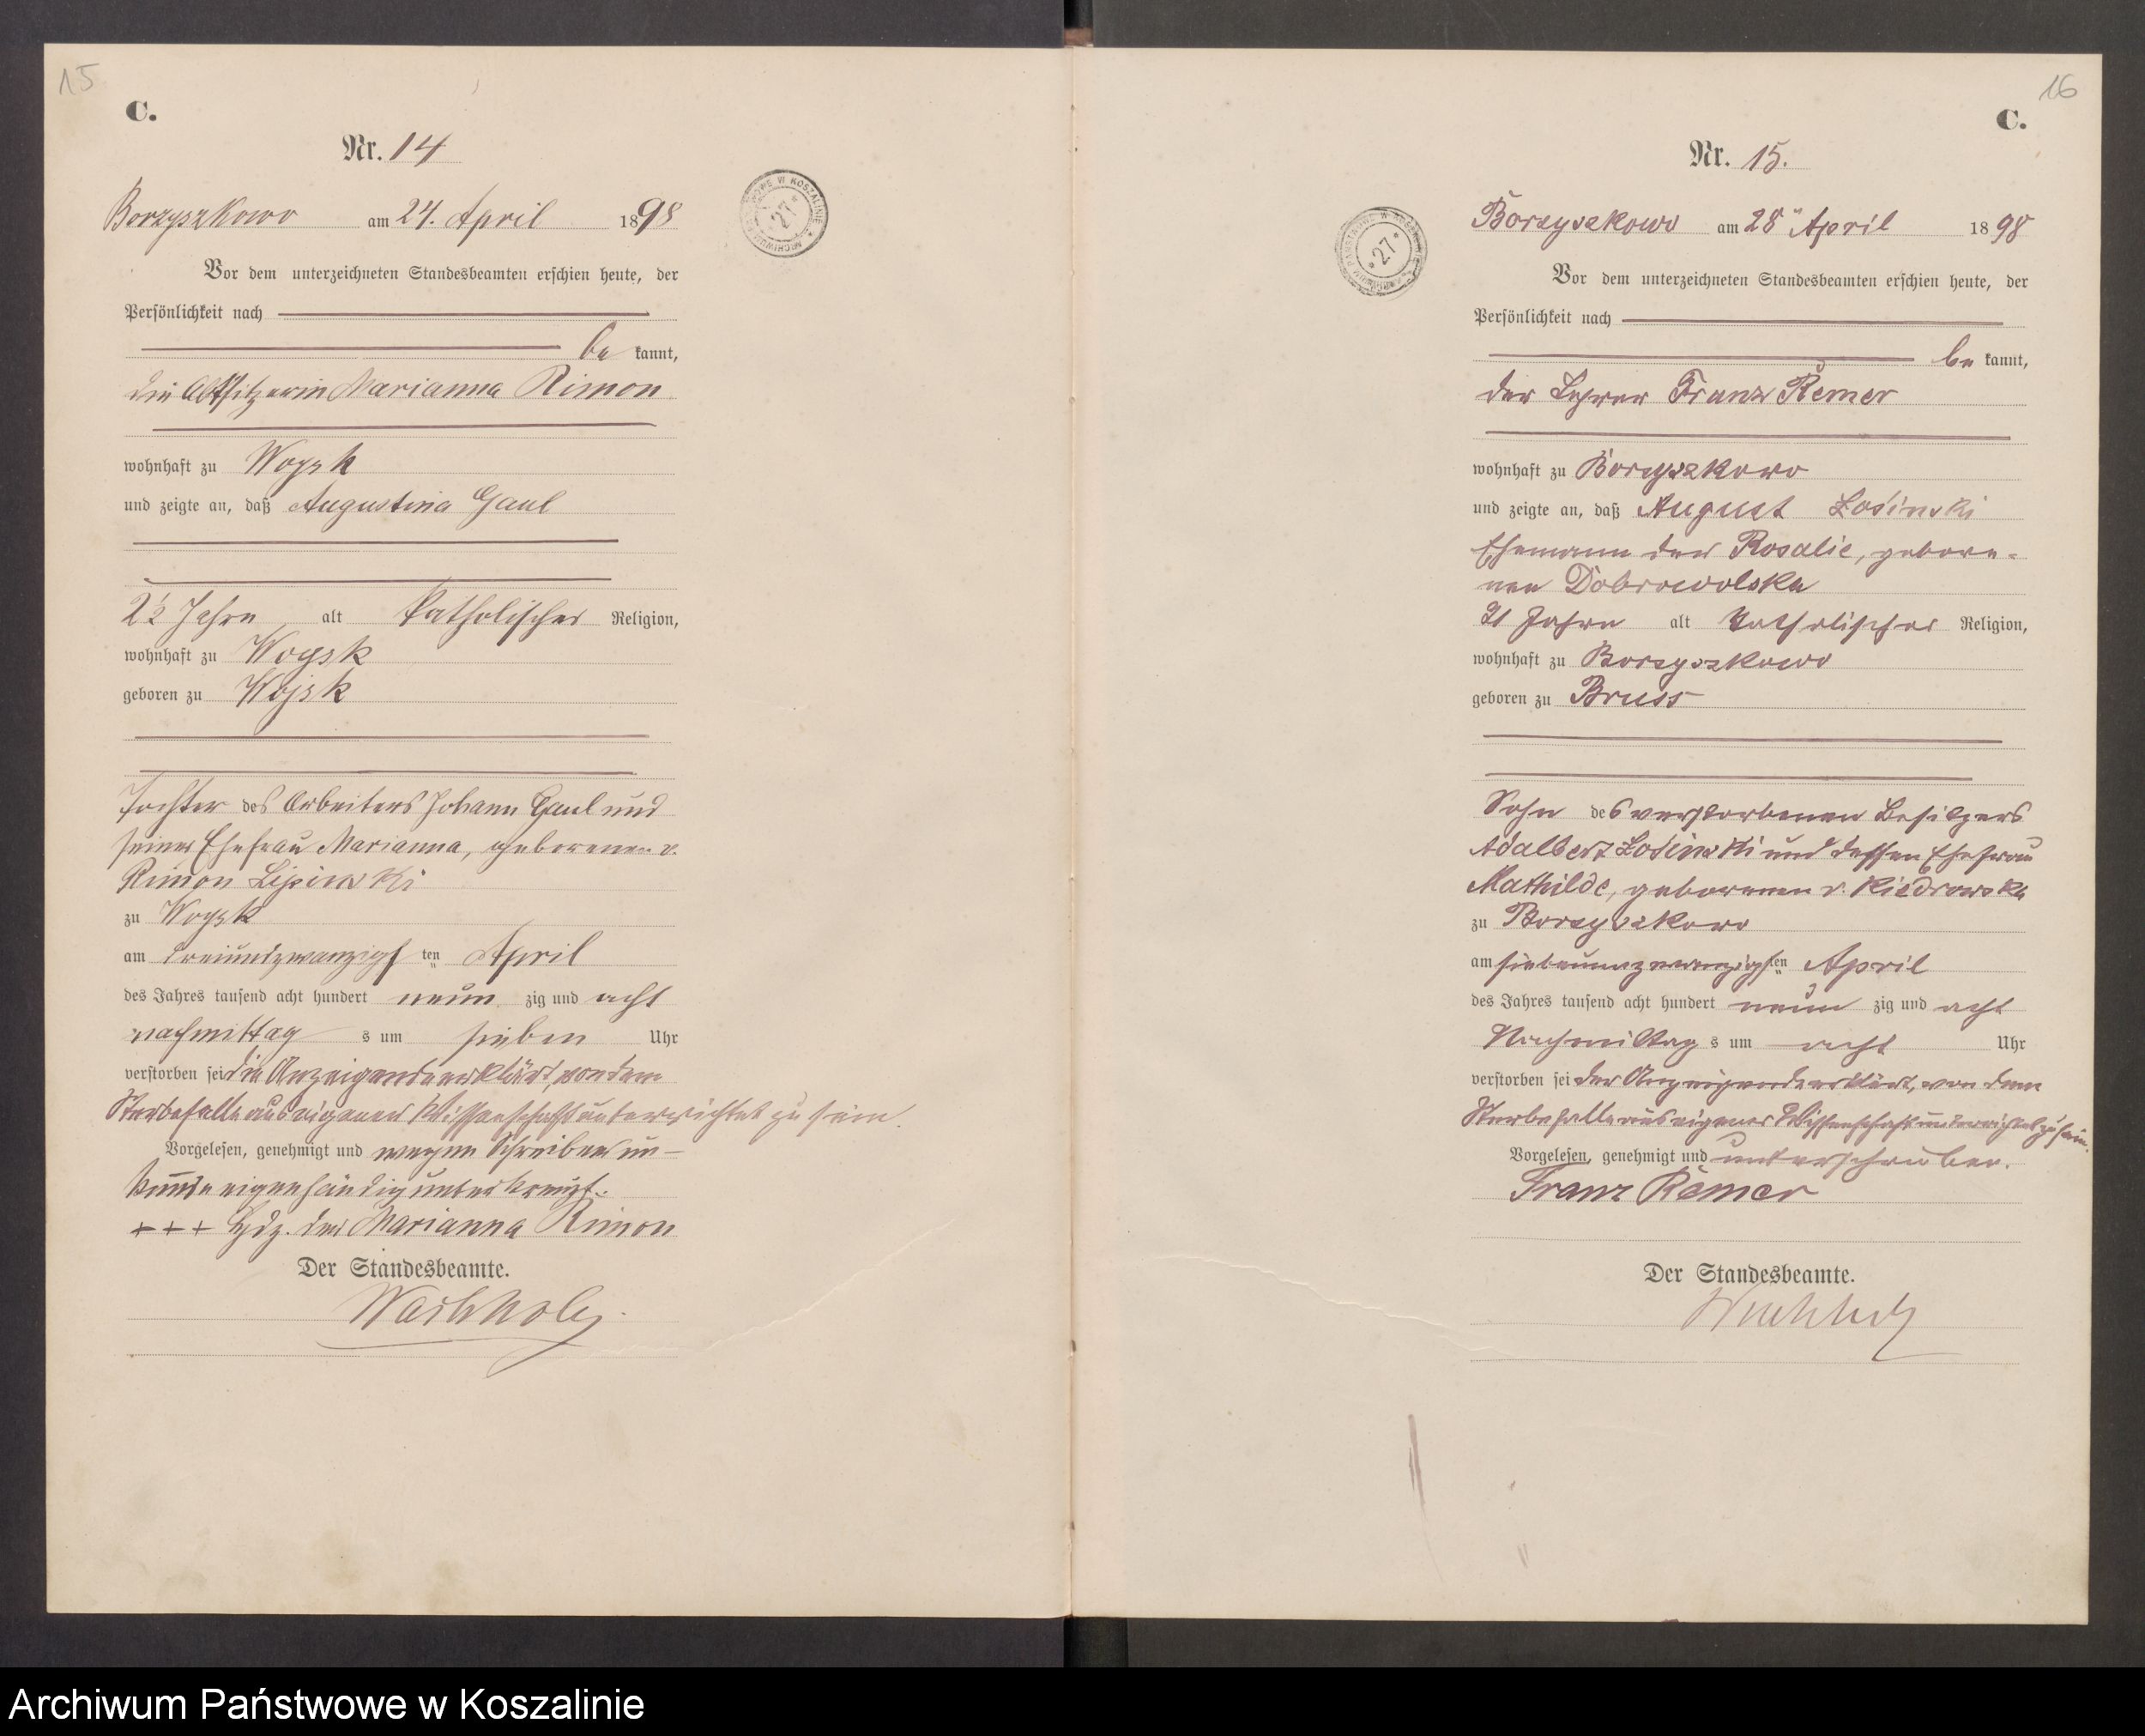 15
C.
Nr. 14
Borzyszkowo am 24. April 1898
Vor dem unterzeichneten Standesbeamten erschien heute, der
Persönlichkeit nach
be kannt,
die Altsitzerin Marianna Rimon
wohnhaft zu Woysk
und zeigte an, daß Augustina Gaul
2½ Jahre alt katholischer Religion,
wohnhaft zu Woysk
geboren zu Wojsk
Tochter des Arbeiters Johann Gaul und
seiner Ehefrau Marianna, geborenen v.
Rimon Lipinski
zu Woysk
am dreiundzwanzigsten April
des Jahres tausend acht hundert neun zig und acht
nachmittag s um sieben Uhr
verstorben sei die Anzeigende erklärt, von dem
Sterbefalle aus eigener Wissenschaft unterrichtet zu sein.
Vorgelesen, genehmigt und wegen Schreibensun-
kunde eigenhändig unterkreuzt.
+++ Hdz. der Marianna Rimon
Der Standesbeamte.
Wachholz.
ARCHIWUM PAŃSTWOWE W KOSZALINIE
*27*
16
C.
Nr. 15.
Borzyszkowo am 28 April 1898
Vor dem unterzeichneten Standesbeamten erschien heute, der
Persönlichkeit nach
be kannt,
der Lehrer Franz Remer
wohnhaft zu Borzyszkowo
und zeigte an, daß August Łosinski
Ehemann der Rosalie, gebore-
nen Dobrowolska
Jahre alt katholischer Religion,
wohnhaft zu Borzyszkowo
geboren zu Bruss
Sohn des verstorbenen Besitzers
Adalbert Łosinski und dessen Ehefrau
Mathilde, geborenen v. Kiedrowska
zu Borzyszkowo
am siebenundzwanzigsten April
des Jahres tausend acht hundert neun zig und acht
Nachmittag s um acht Uhr
verstorben sei der Anzeigende erklärt, von dem
Sterbefalle aus eigener Wissenschaft unterrichtet zu sein.
Vorgelesen, genehmigt und unterschrieben.
Franz Remer
Der Standesbeamte.
Wachholz
ARCHIWUM PAŃSTWOWE W KOSZALINIE
*27*
Archiwum Państwowe w Koszalinie